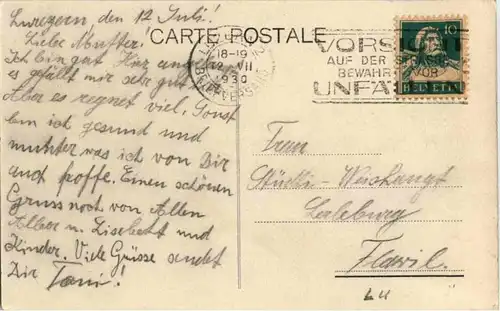 Luzern, den 12 Juli.
Liebe Mutter!
Ich bin gut hier
es gefällt mir sehr gut
Aber es regnet viel. Sonst
bin ich gesund und
munter was ich von Dir
auch hoffe. Einen schönen
Gruss noch von Allen
Alber u. Lisebett und
Kinder. Viele Grüsse sendet
Dir Toni!
CARTE POSTALE
18-19
12 VII
1930
BRIEFVERSAND
VORSICHT
AUF DER STRASSE
BEWAHRT VOR
10
HELVETIA
Frau
Stücki-
Flawil.